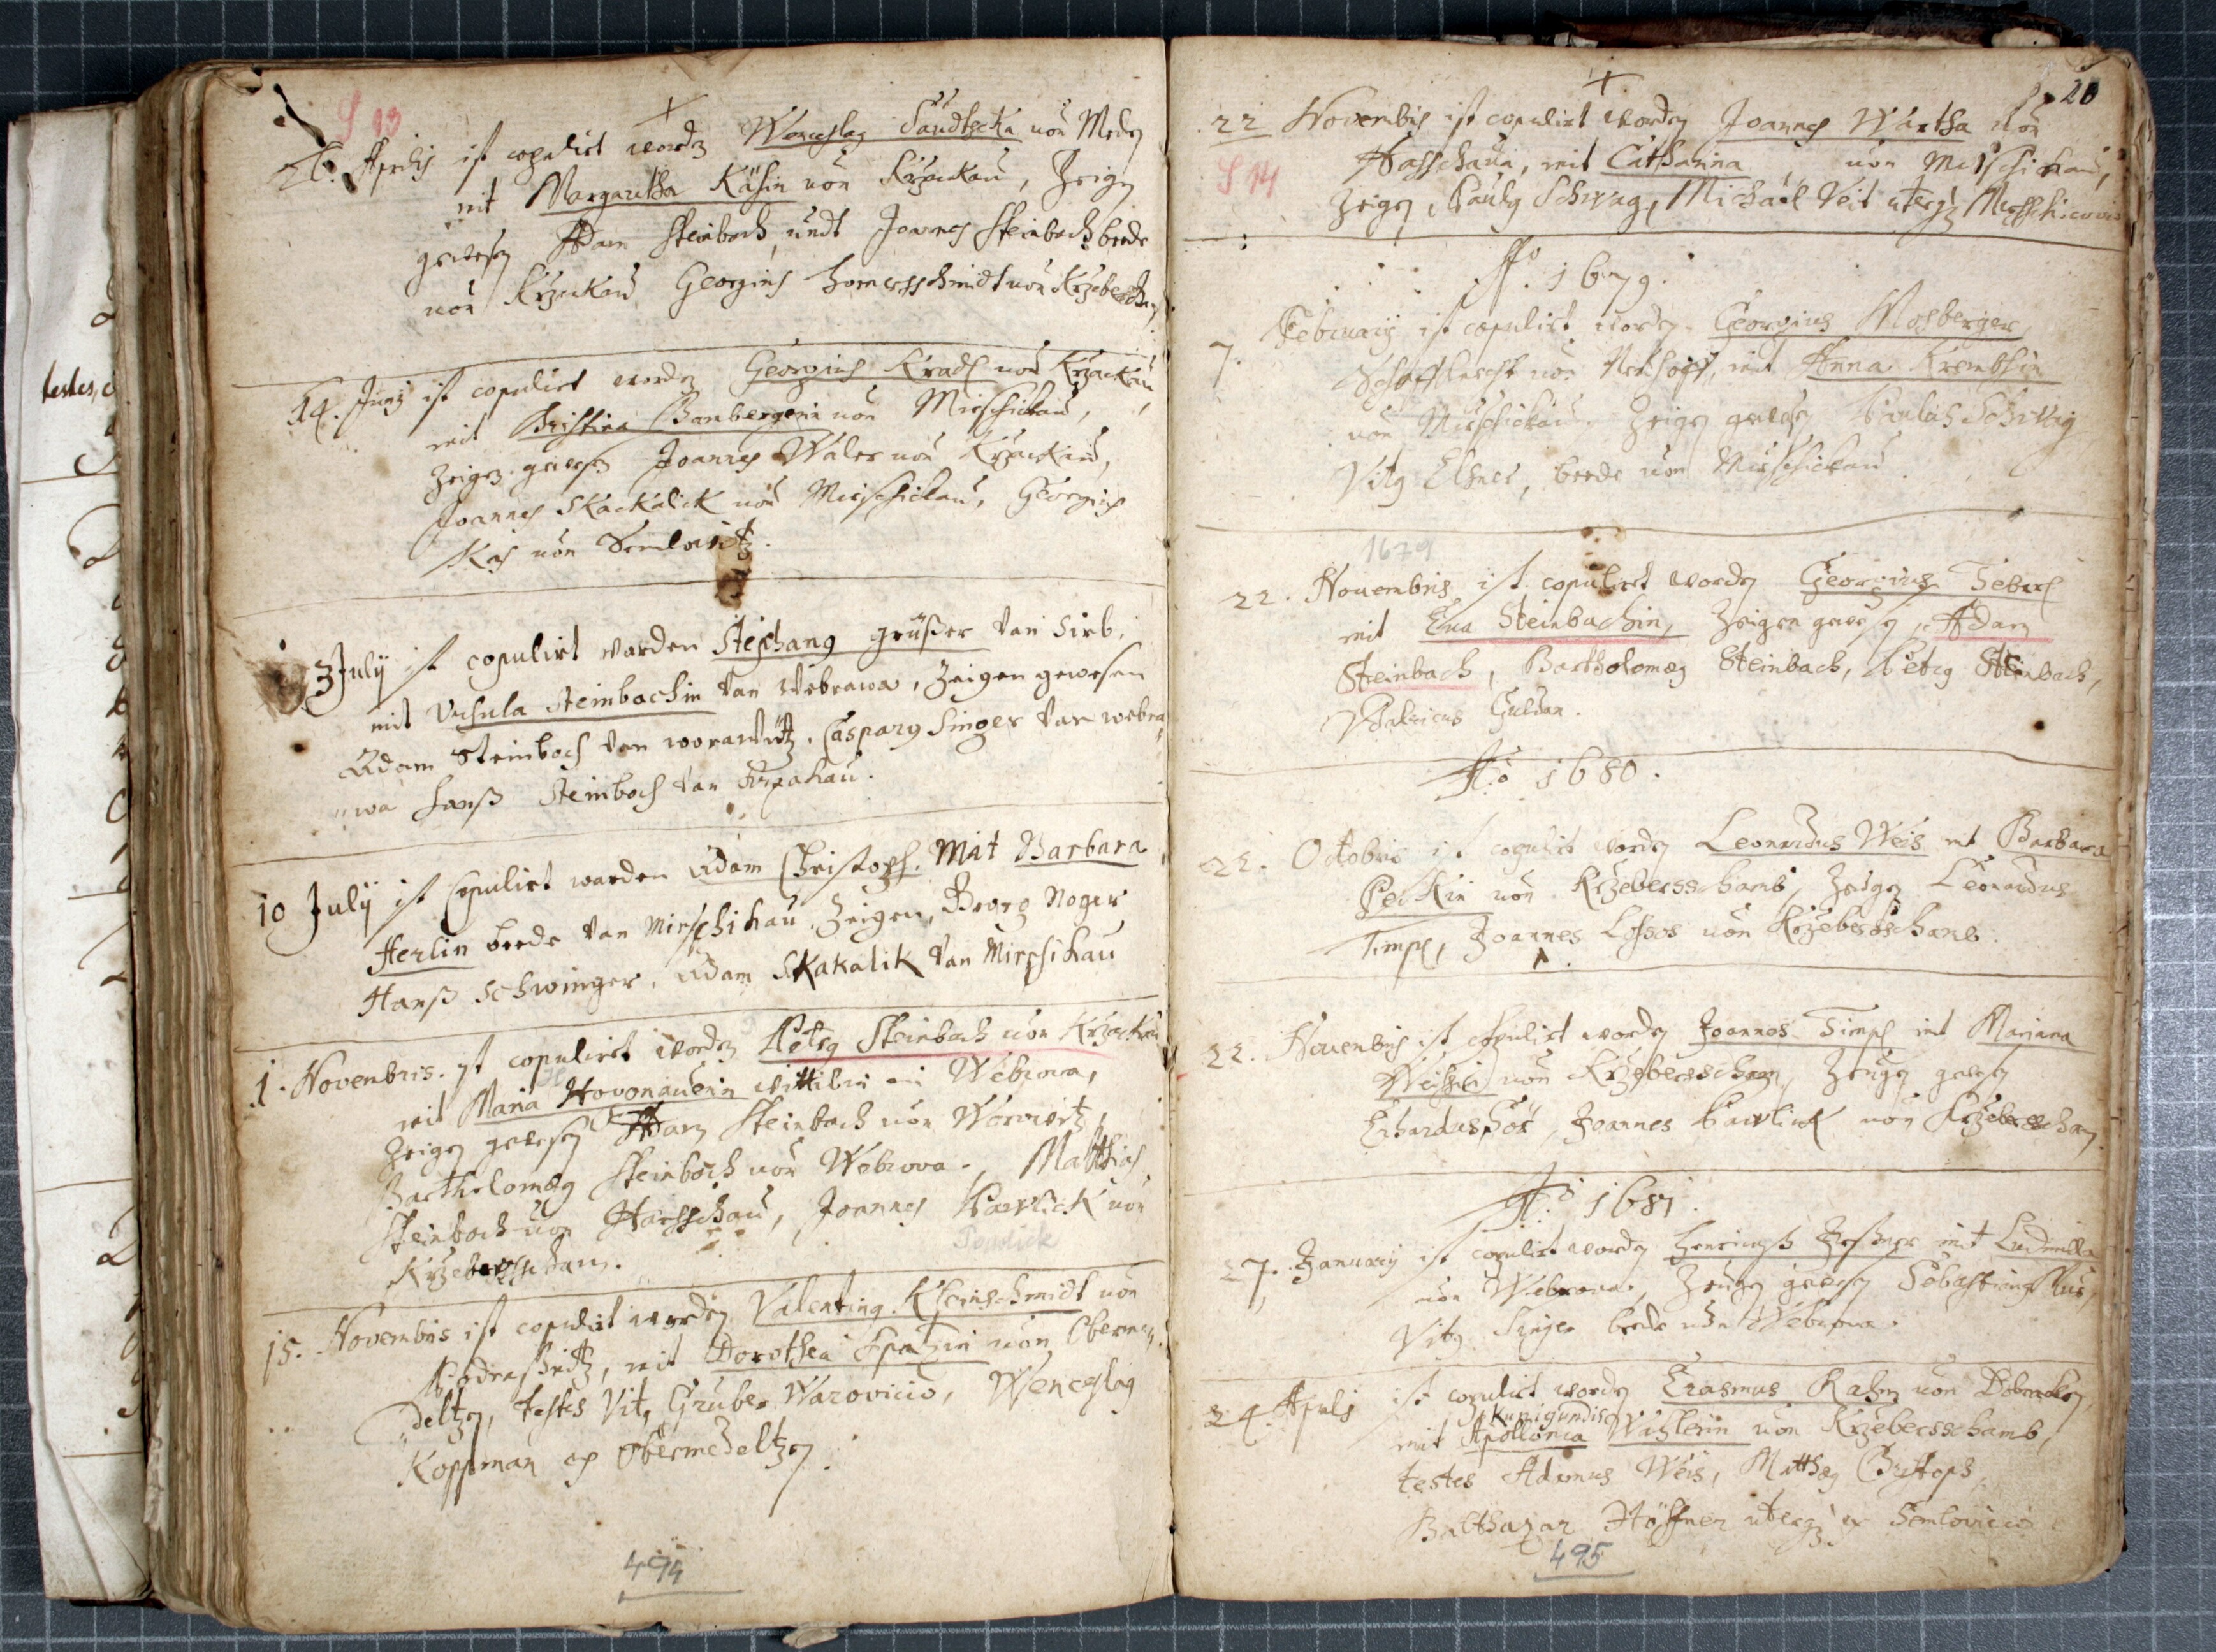 S 13
Aprilis ist copulirt worden Wenceslaus Saudtseka von
mit Margaretha Käsin von Krzackau, Zeigen
gewesen Adam Steinbach undt Joannes Steinbach beede
von Krzackau Georgius
14. Junij ist copulirt worden Georgius Kradl von Krzackau
mit Christina Bambergerin von Mirschickau,
Zeigen gewesen Joannes Waler von Krzackau,
Joannes Skackalick von Mirschickau, Georgius
Käs von Semlovitz.
3 Julij ist copulirt worden Stephanus grüßer von Sirb,
mit Ursula Steinbachin von Webrawa, Zeigen gewesen
Adam Steinbach von worawitz, Casparus Singer von webra
wa Hanß Steinbach von
10 July ist Copulirt warden Adam Christoph. Mit Barbara
Herlin beede von Mirschikau, Zeigen, Georg Noger
Hanß Schwinger, Adam SKakalik von Mirschikau
1. Novenbris. ist copulirt worden Petrus Steinbach von Krzackau
mit Maria Hovonauerin wittibin in Webrova,
Zeigen gewesen Adam Steinbach von Worowitz,
Bartholomæus Steinbach von Webrova, Matthias
Steinbach von Haschau, Joannes Pawlick von
Pawlick
Krzeberscham.
15. Novembris ist copulirt worden Valentinus Kleinschmidt von
mit Dorothea Spatzin von Oberme
deltzen, testes Vitus Gruber Warovicio, Wenceslaus
Koppman ex Obermedeltzen.
494
20
22 Novembris ist copulirt worden Joannes Wartha von
S 14
Haschaua, mit Catharina von Mirschikau,
Zeigen, Paulus Schwag, Michael Veit uterque Mirschicovio
Ao. 1679.
7. Februarij ist copulirt worden Georgius Mosberger
Schaffknecht von mit Anna Krembsin
von Mirschickau. Zeigen gewesen Paulus Schwag
Vitus Elsner, beede von Mirschickau
1679
22. Novembris ist copulirt worden Georgius Seberl
mit Eva Steinbachin, Zeigen gewesen, Adam
Steinbach, Bartholomæus Steinbach, Petrus Steinbach,
Vdalricus Guldan.
Ao 1680.
22. Octobris ist copulirt worden Leonardus Weis mit Barbara
Peckin von Krzebersschamb, Zeugen Leonardus
Timpl, Joannes Lossos von Krzebersschamb.
22. Novembris ist copulirt worden Joannes Timpl mit Mariana
von Krzebersscham, Zeugen gewesen
Erhardus Joannes Pawlick von Krzeberscham.
Ao. 1681.
27. January ist copulirt worden mit Ludmilla
von Webrova. Zeugen gewesen Sebastianus
Vitus Singer beede von Webrova.
24. Aprilis ist copulirt worden Erasmus Rahm von
Kunigundis
mit Apollonia Wißlerin von Krzebersschamb,
testes Adamus Weis, Matthæus Christoph,
Balthazar Höffner uterque ex Semlovicio
495